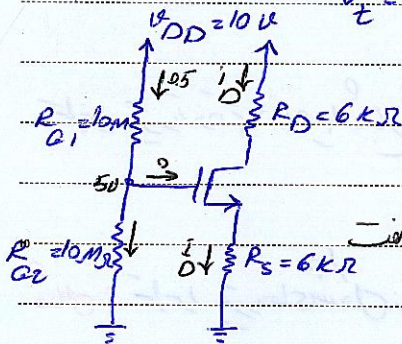 V_t
V_DD = 10 V
0.5
i_D
R_G1 = 10M
R_D = 6 KΩ
5V
0
R_G2 = 10MΩ
i_D
R_S = 6 KΩ